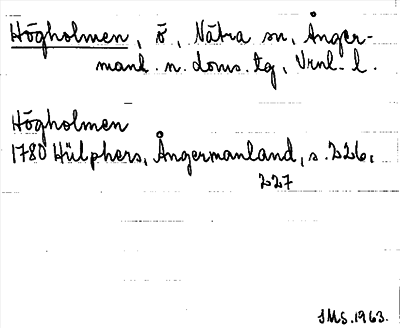 Högholmen, ö, Nätra sn, Ånger-
manl. n. doms. tg, Vrnl. l.
Högholmen
1780 Hülphers, Ångermanland, s. 226,
227
JMS. 1963.